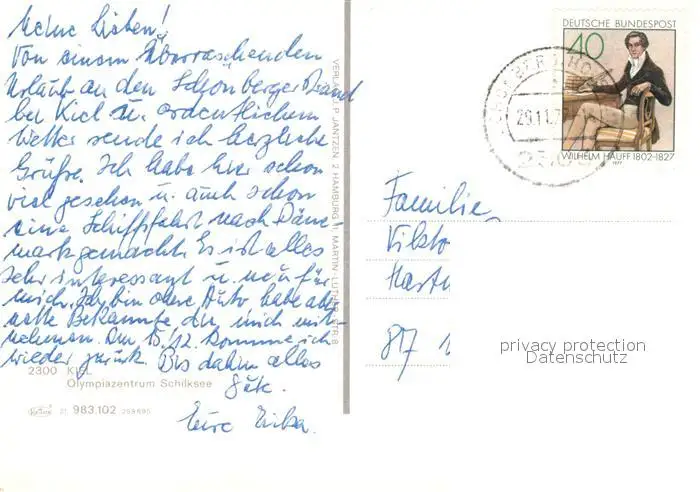 Meine Lieben!
Von einem Überraschenden
Urlaub an den Schönberger Strand
bei Kiel u. ordentlichem
Wetter sende ich herzliche
Grüße. Ich habe hier schon
viel gesehen u. auch schon
eine Schiffsfahrt nach Däne-
mark gemacht. Es ist alles
sehr interessant u. neu für
mich. Ich bin ohne Auto habe aber
nette Bekannte die mich mit-
nehmen. Am 15./12. komme ich
wieder zurück. Bis dahin alles
Gute.
Eure Erika.
2300 KIEL
Olympiazentrum Schilksee
21 983.102 259695
VERLAG J.P. JANTZEN 2 HAMBURG 11 MARTIN-LUTHER-STR. 8
DEUTSCHE BUNDESPOST
40
WILHELM HAUFF 1802-1827
1977
29.11.7
Familie
Vikto
Hartm
817
privacy protection
Datenschutz